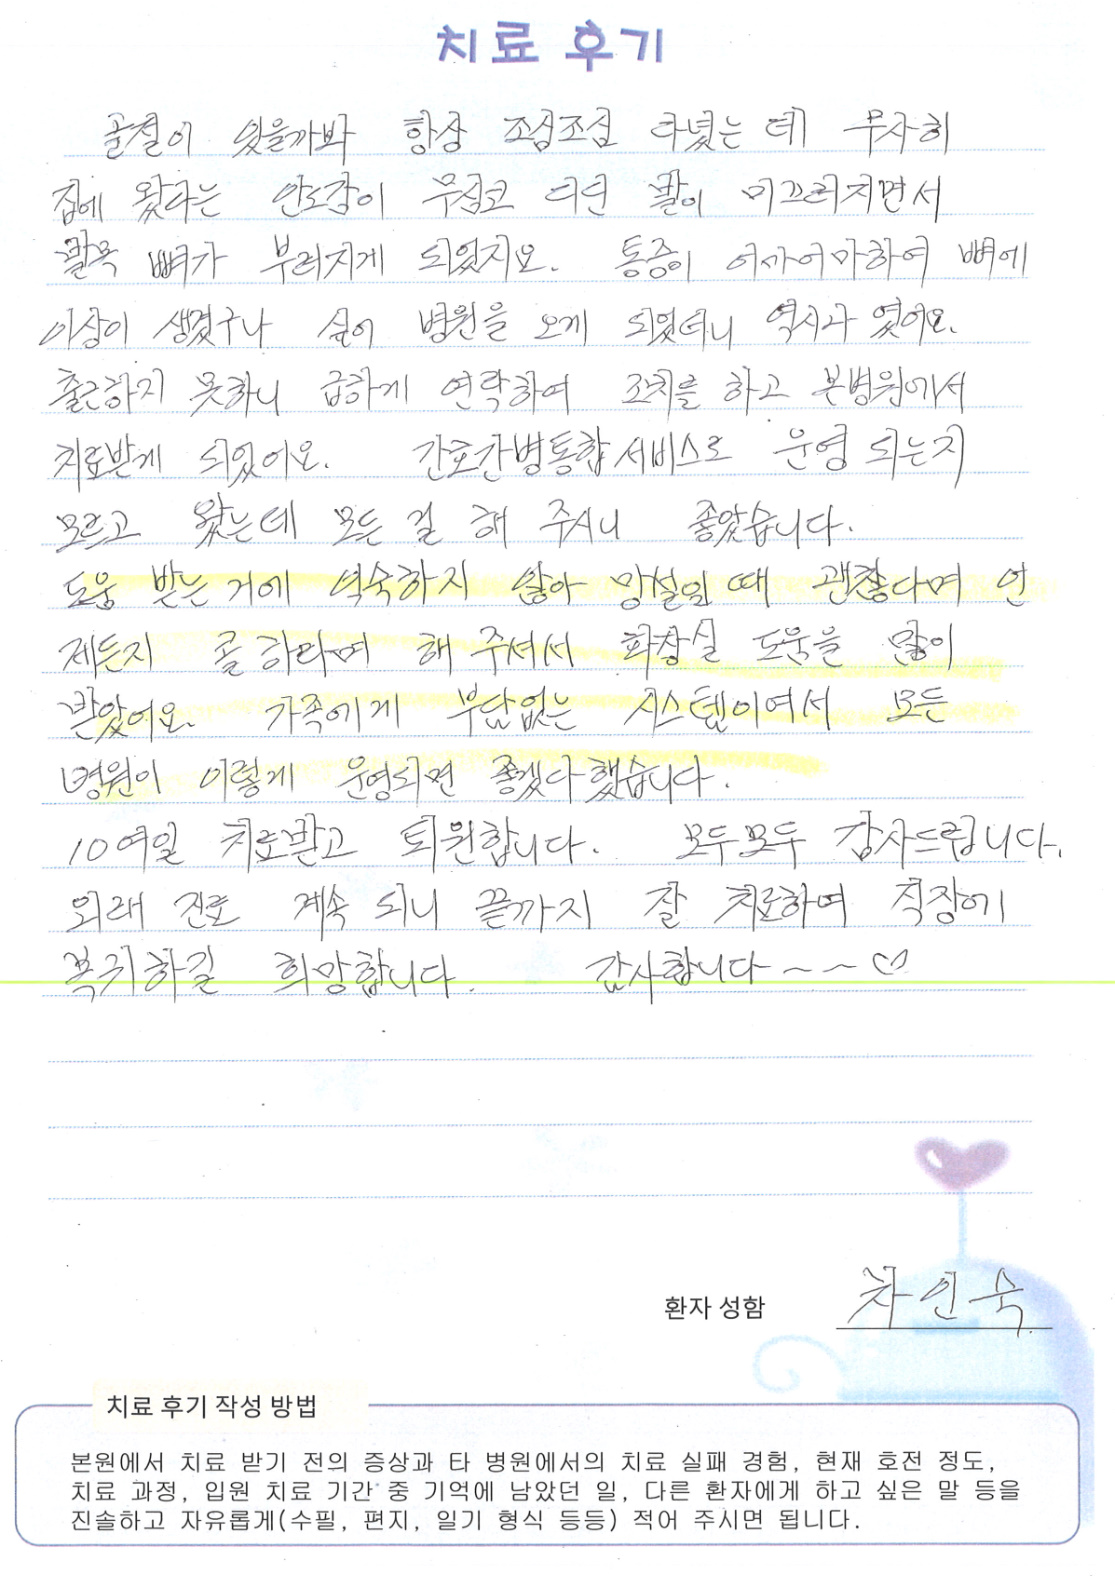 치료 후기
골절이 있을까봐 항상 조심조심 다녔는데 무사히
집에 왔다는 안도감이 무심코 디딘 발이 미끄러지면서
발목 뼈가 부러지게 되었지요. 통증이 어마어마하여 뼈에
이상이 생겼구나 싶어 병원을 오게 되었더니 역시과 였어요.
출근하지 못하니 급하게 연락하여 조치를 하고 본병원에서
치료받게 되었어요. 간호간병통합서비스로 운영 되는지
모르고 왔는데 모든 걸 해 주시니 좋았습니다.
도움 받는 거에 익숙하지 않아 망설일 때 괜찮다며 언
제든지 콜 하라며 해 주셔서 화장실 도움을 많이
받았어요. 가족에게 부담없는 시스템이여서 모든
병원이 이렇게 운영되면 좋겠다 했습니다.
10여일 치료받고 퇴원합니다. 모두모두 감사드립니다.
외래 진료 계속 되니 끝까지 잘 치료하여 직장에
복귀하길 희망합니다. 감사합니다~~♡
환자 성함 차인숙
치료 후기 작성 방법
본원에서 치료 받기 전의 증상과 타 병원에서의 치료 실패 경험, 현재 호전 정도,
치료 과정, 입원 치료 기간 중 기억에 남았던 일, 다른 환자에게 하고 싶은 말 등을
진솔하고 자유롭게(수필, 편지, 일기 형식 등등) 적어 주시면 됩니다.